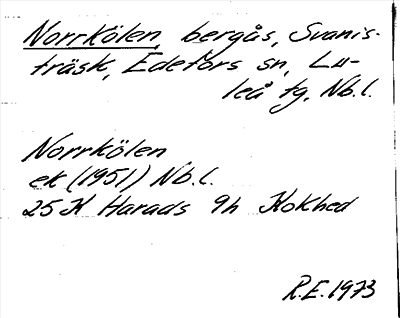 Norrkölen, bergås, Svanis-
träsk, Edefors sn, Lu-
leå tg, Nb.l.
Norrkölen
ek (1951) Nb.l.
25K Harads 9h Kokhed
R.E. 1973